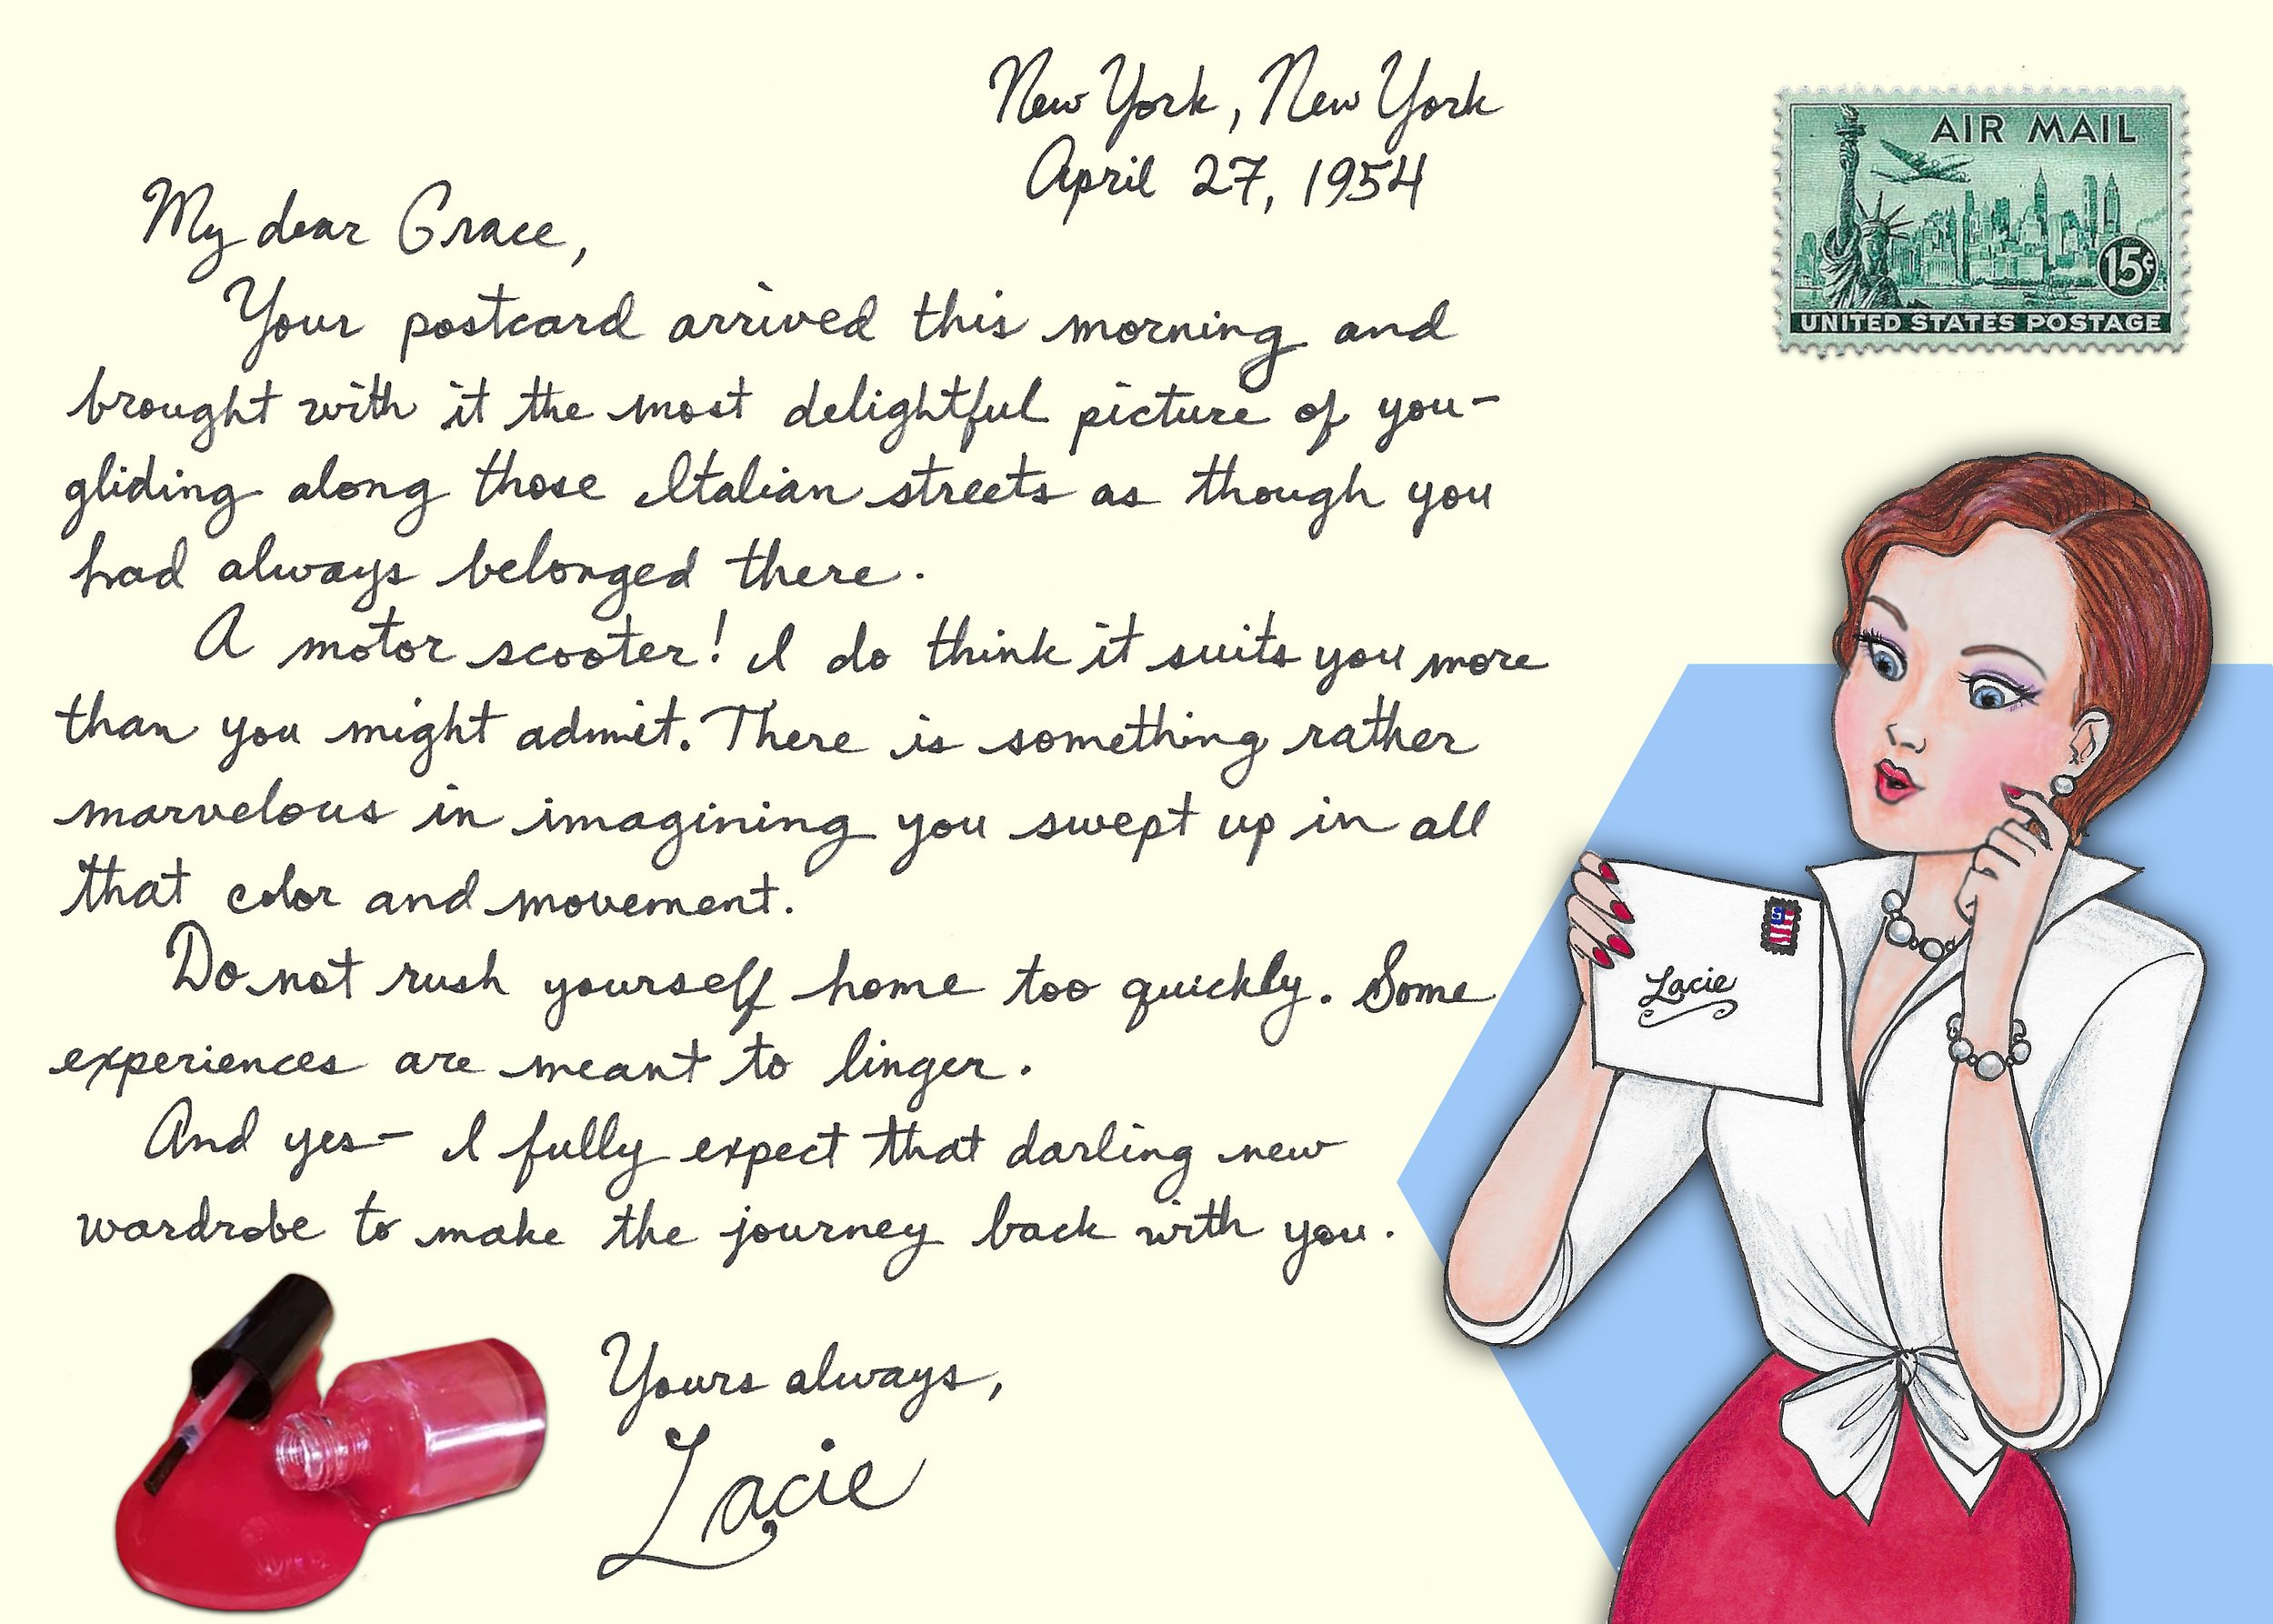 New York, New York
April 27, 1954
AIR MAIL
15¢
UNITED STATES POSTAGE
My dear Grace,
Your postcard arrived this morning and
brought with it the most delightful picture of you-
gliding along those Italian streets as though you
had always belonged there.
A motor scooter! I do think it suits you more
than you might admit. There is something rather
marvelous in imagining you swept up in all
that color and movement.
Do not rush yourself home too quickly. Some
experiences are meant to linger.
And yes- I fully expect that darling new
wardrobe to make the journey back with you.
Yours always,
Lacie
Lacie